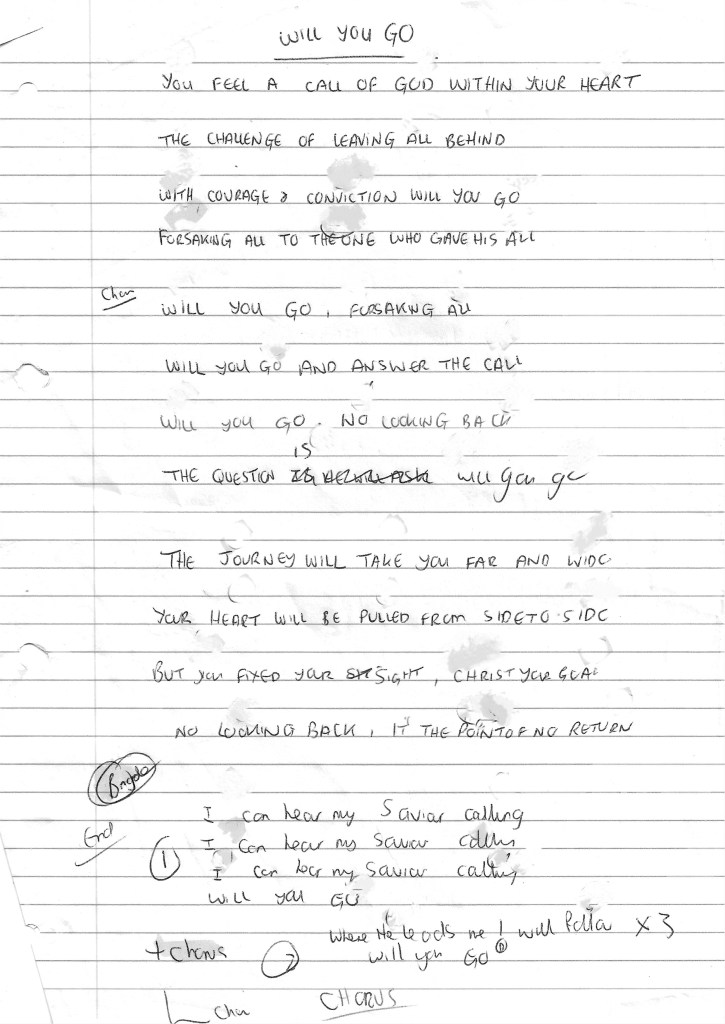 WILL YOU GO
YOU FEEL A CALL OF GOD WITHIN YOUR HEART
THE CHALLENGE OF LEAVING ALL BEHIND
WITH COURAGE & CONVICTION WILL YOU GO
FORSAKING ALL TO THE ONE WHO GAVE HIS ALL
Chorus
WILL YOU GO, FORSAKING ALL
WILL YOU GO AND ANSWER THE CALL
WILL YOU GO. NO LOOKING BACK
IS
THE QUESTION will you go
THE JOURNEY WILL TAKE YOU FAR AND WIDE
YOUR HEART WILL BE PULLED FROM SIDE TO SIDE
BUT YOU FIXED YOUR SIGHT, CHRIST YOUR GOAL
NO LOOKING BACK, IT THE POINT OF NO RETURN
Bridge
I can hear my Saviour calling
End
1 I can hear my Saviour calling
I can hear my Saviour calling
WILL YOU GO
Where He leads me I will follow X3
+ Chorus 2 will you GO
Chorus CHORUS